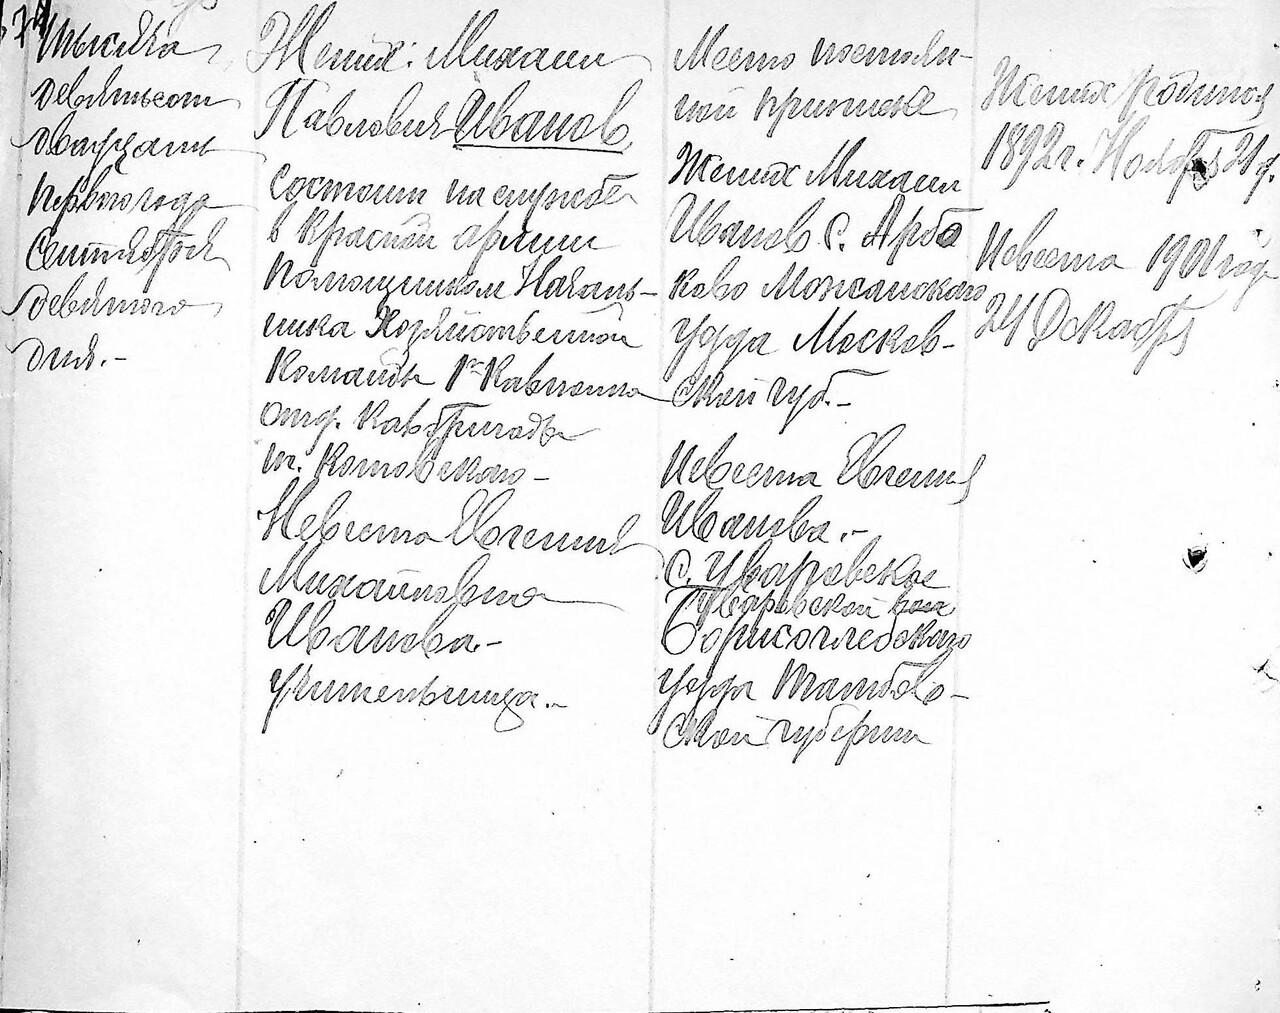 74
тысяча
девятьсот
двадцать
первого года
Сентября
девятого
дня.-
Жених: Михаил
Павлович Иванов
состоит на службе
в Красной армии
помощником Началь-
ника Хозяйственной
команды 1го Кавполка
отд. Кавбригады
т. Котовского -
Невеста Евгения
Михайловна
Иванова -
учительница.-
Место постоян-
ной приписке
Жених Михаил
Иванов с. Арбе
ково Можайского
уезда Москов-
ской губ.-
Невеста Евгения
Иванова.-
с. Уваровское
Уваровской вол
Борисоглебского
уезда Тамбов-
ской губернии
Жених родился
1892 г. Ноября 21 д.
Невеста 1901 году
24 Декабря